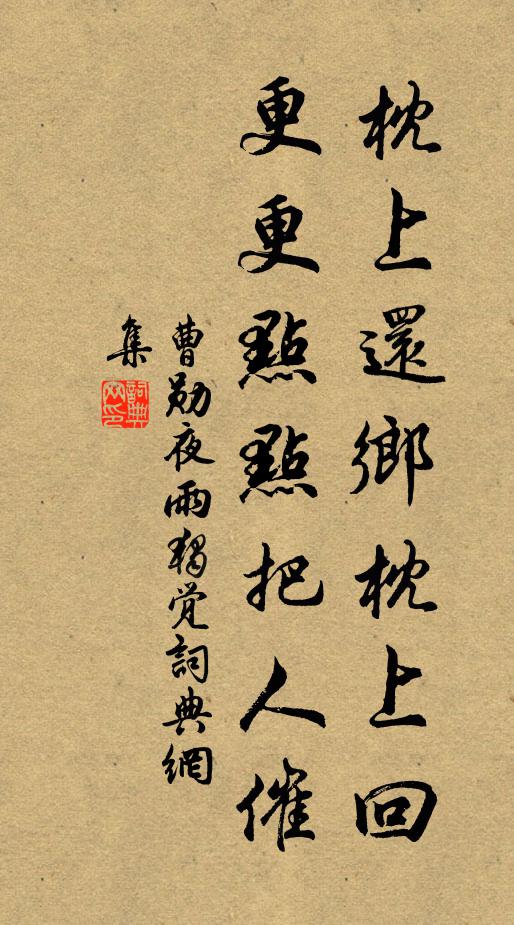 枕上還鄉枕上回
更更點點把人催
曹勛夜雨獨覺詞典網
集
詞典网印